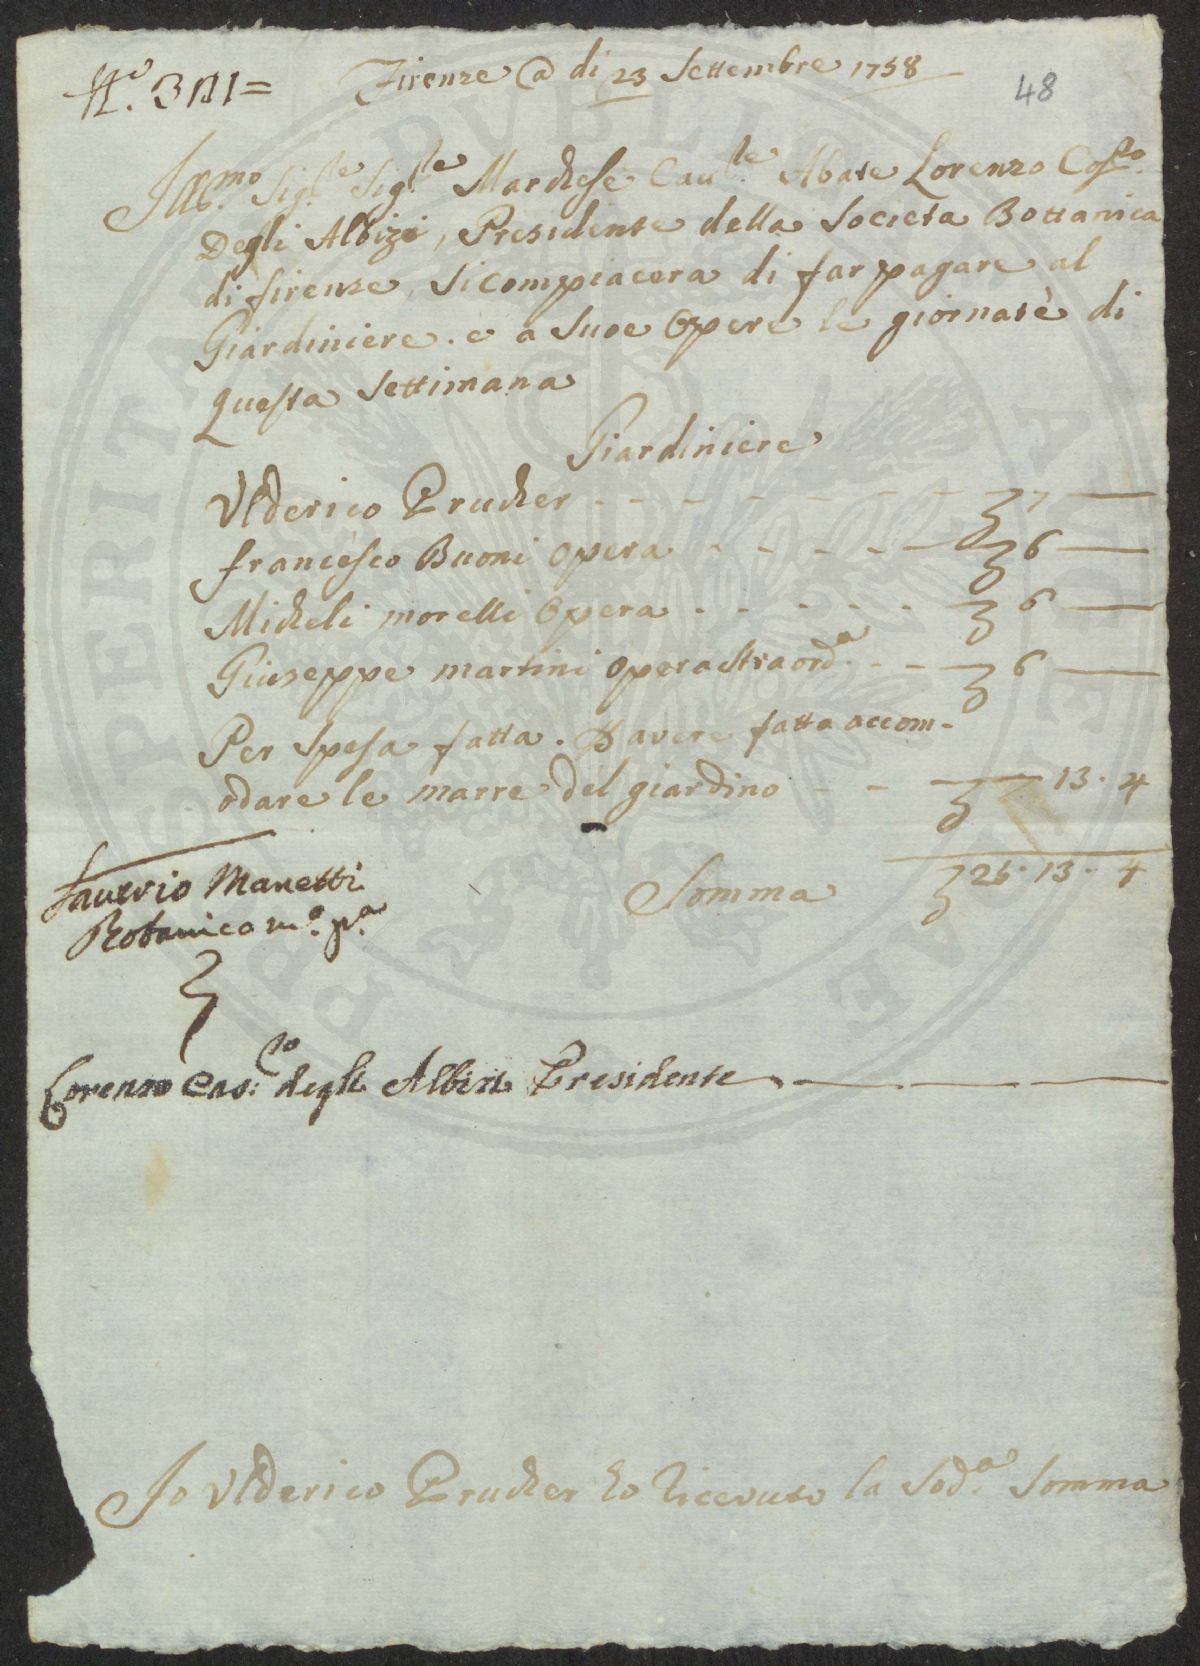 N.o 301=
Firenze @ di 23 Settembre 1758
48
Ill.mo Sig.re Sig.re Marchese Cau.le Abate Lorenzo Cos.to
Degli Albizi, Presidente della Societa Bottanica
di firenze, si compiacera di far pagare al
Giardiniere. e a suoe Opere le giornatè di
questa Settimana
Giardiniere
Ulderico Prucher - - - - - - - - 7 —
francesco Buoni opera - - - - - 6 —
Micheli morelli Opera - - - - - 6 —
Giuseppe martini opera straord.a - - 6 —
Per spesa fatta. D avere fatto accom-
odare le marre del giardino - - — 13. 4
Somma 25. 13. 4
Saverio Manetti
Botanico m.o p.a
Lorenzo Cas: to degli Albizi Presidente
Io Ulderico Prucher ho ricevuto la Sod.a Somma
PROSPERITAS PUBLICA AUGUSTAE